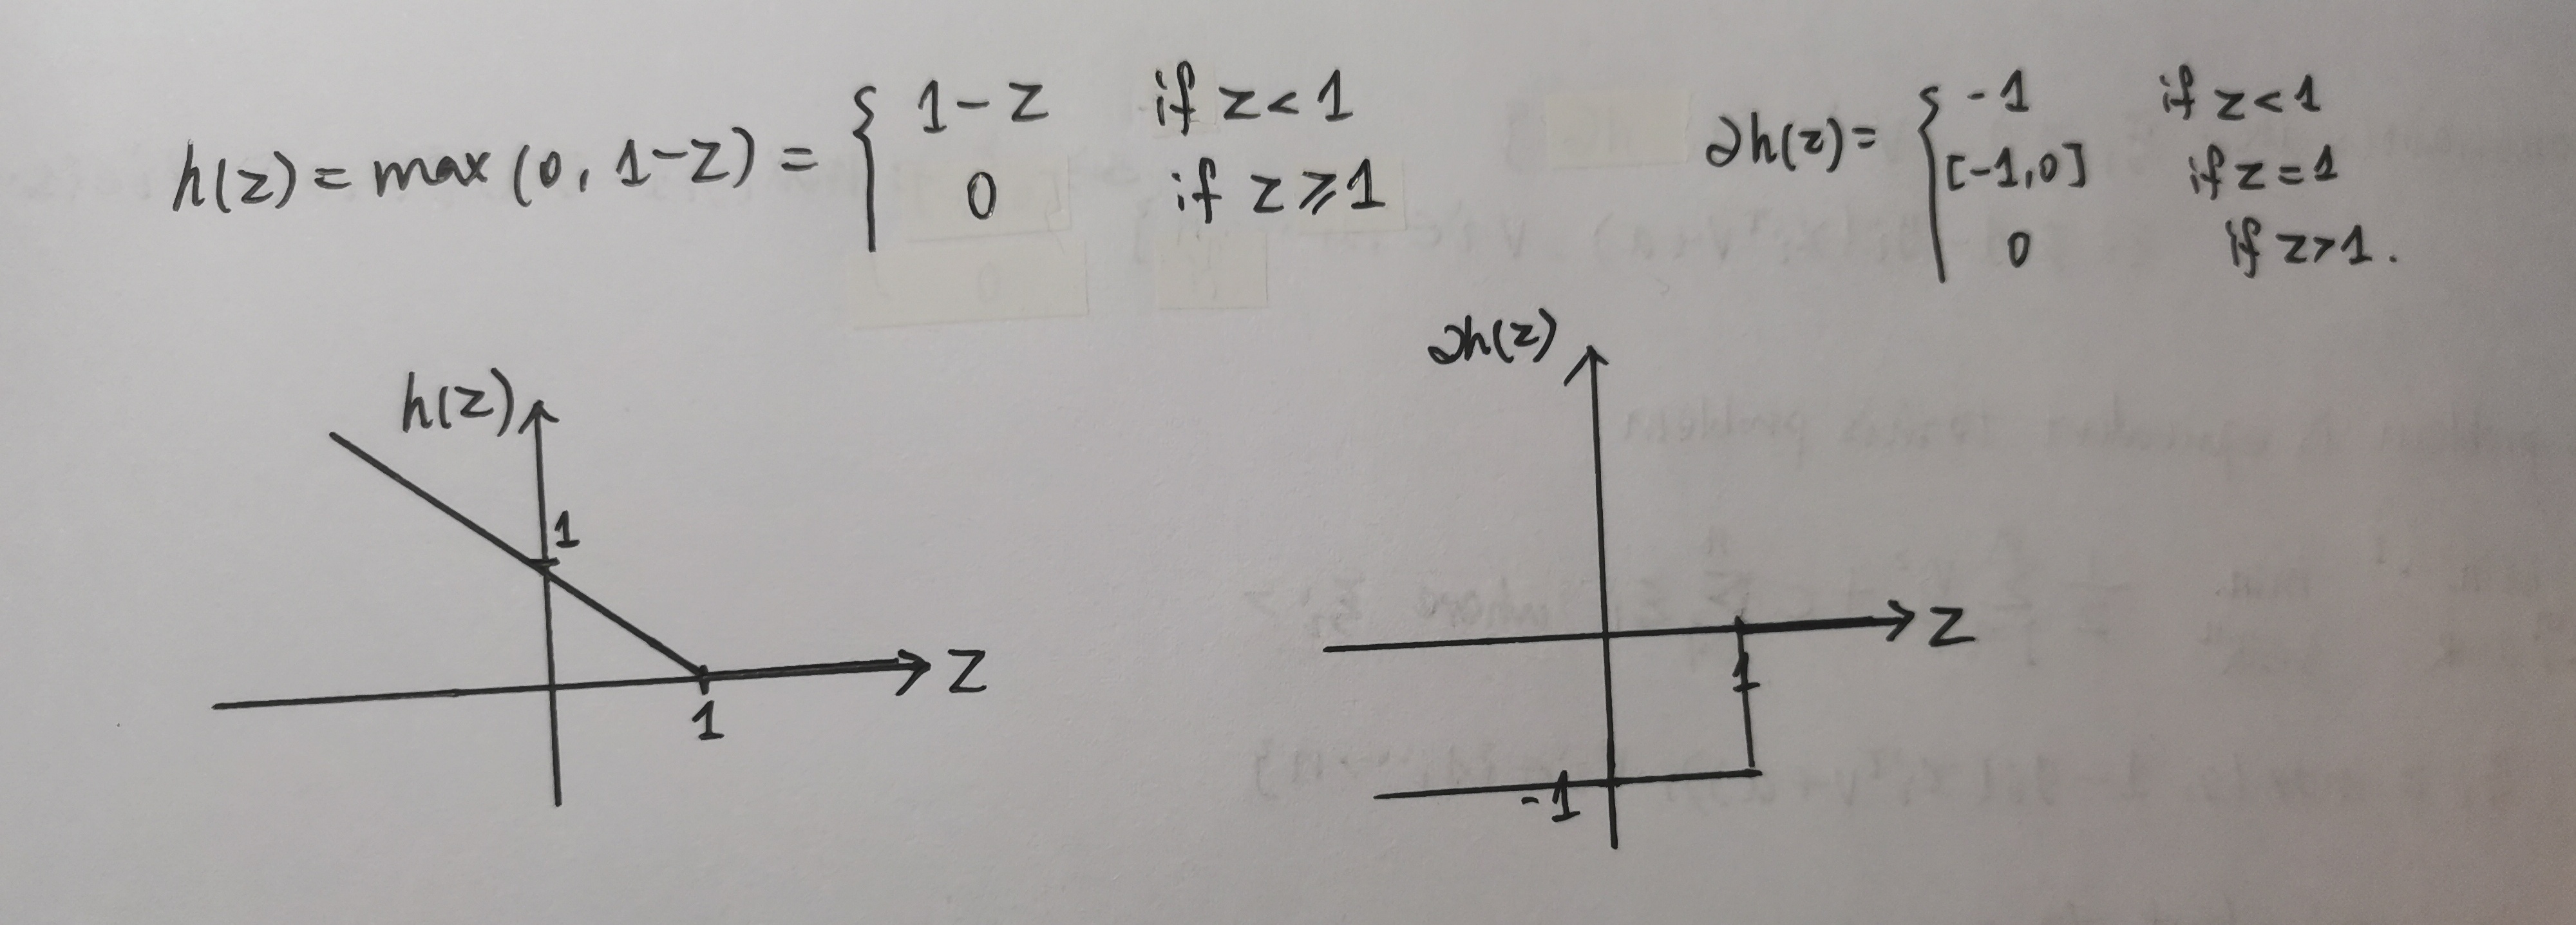 h(z) = max (0, 1-z) = { 1-z if z < 1
0 if z ⩾ 1
∂h(z) = { -1 if z < 1
[-1,0] if z = 1
0 if z > 1.
h(z)
1
z
1
∂h(z)
z
1
-1